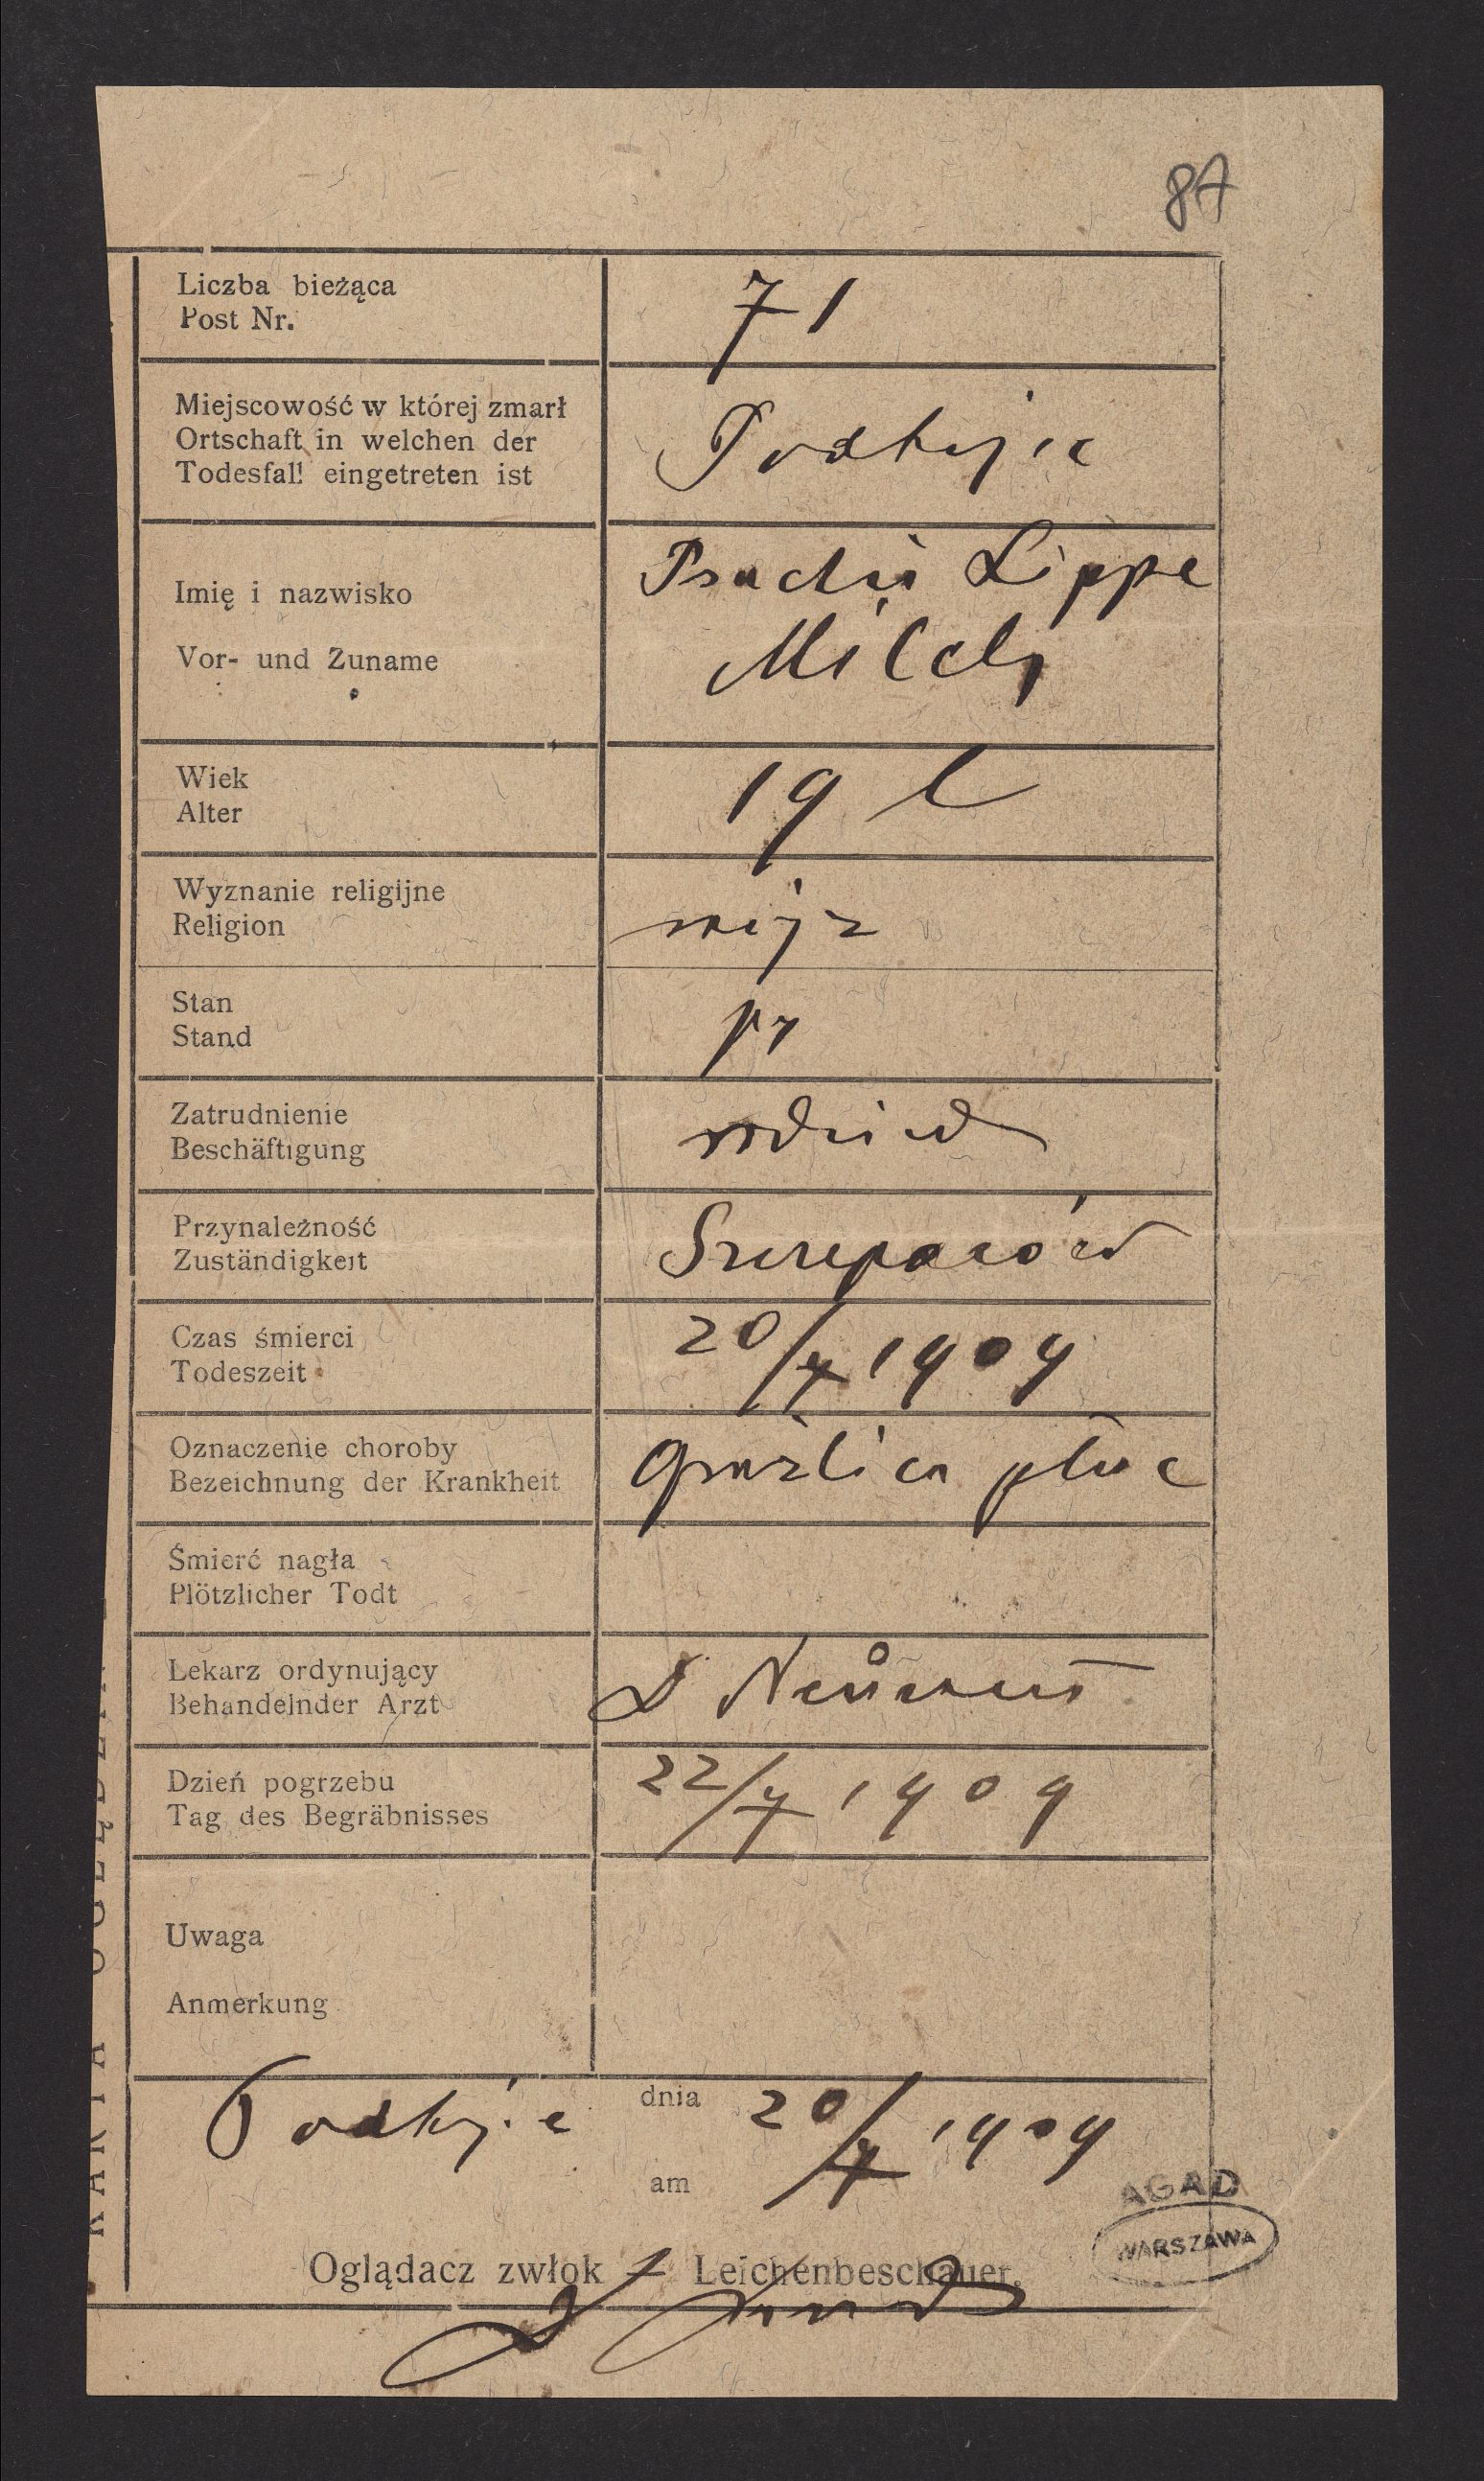 87
Liczba bieżąca
Post Nr.
71
Miejscowość w której zmarł
Ortschaft in welchen der
Todesfall eingetreten ist
Podhajce
Imię i nazwisko
Vor- und Zuname
Lippe
Milch
Wiek
Alter
19 l
Wyznanie religijne
Religion
mojż
Stan
Stand
Zatrudnienie
Beschäftigung
Przynależność
Zuständigkeit
Czas śmierci
Todeszeit
20/7 1909
Oznaczenie choroby
Bezeichnung der Krankheit
Gruźlica płuc
Śmierć nagła
Plötzlicher Todt
Lekarz ordynujący
Behandelnder Arzt
Dzień pogrzebu
Tag des Begräbnisses
22/7 1909
Uwaga
Anmerkung
Podhajce dnia 20/7 1909
am
Oglądacz zwłok — Leichenbeschauer.
AGAD
WARSZAWA